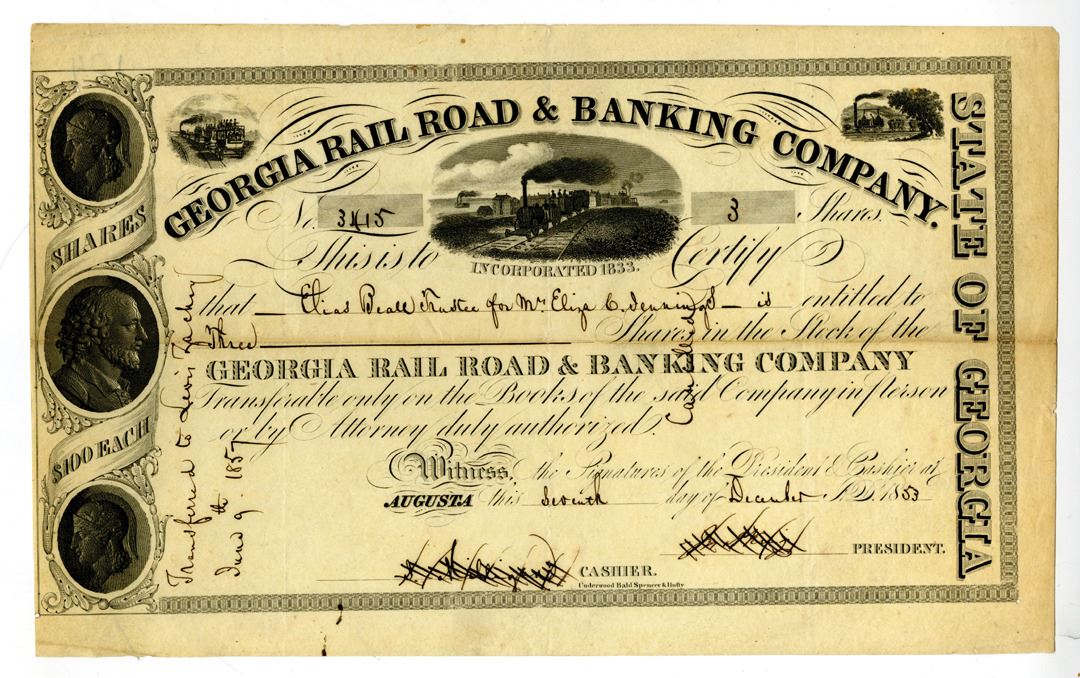 GEORGIA RAIL ROAD & BANKING COMPANY.
No. 3415
3 Shares.
INCORPORATED 1833.
This is to Certify
that — Elias Beall Trustee for Mrs Eliza C. Jennings — is entitled to
Three Shares in the Stock of the
GEORGIA RAIL ROAD & BANKING COMPANY
Transferable only on the Books of the said Company in person
or by Attorney duly authorized.
Witness, the Signatures of the President & Cashier at
AUGUSTA this Seventh day of December A.D. 1853
PRESIDENT.
CASHIER.
Underwood Bald Spencer & Hufty
SHARES
$100 EACH
STATE OF GEORGIA
Transferred to Lewis Zachry
June 9th 1857
Cancelled